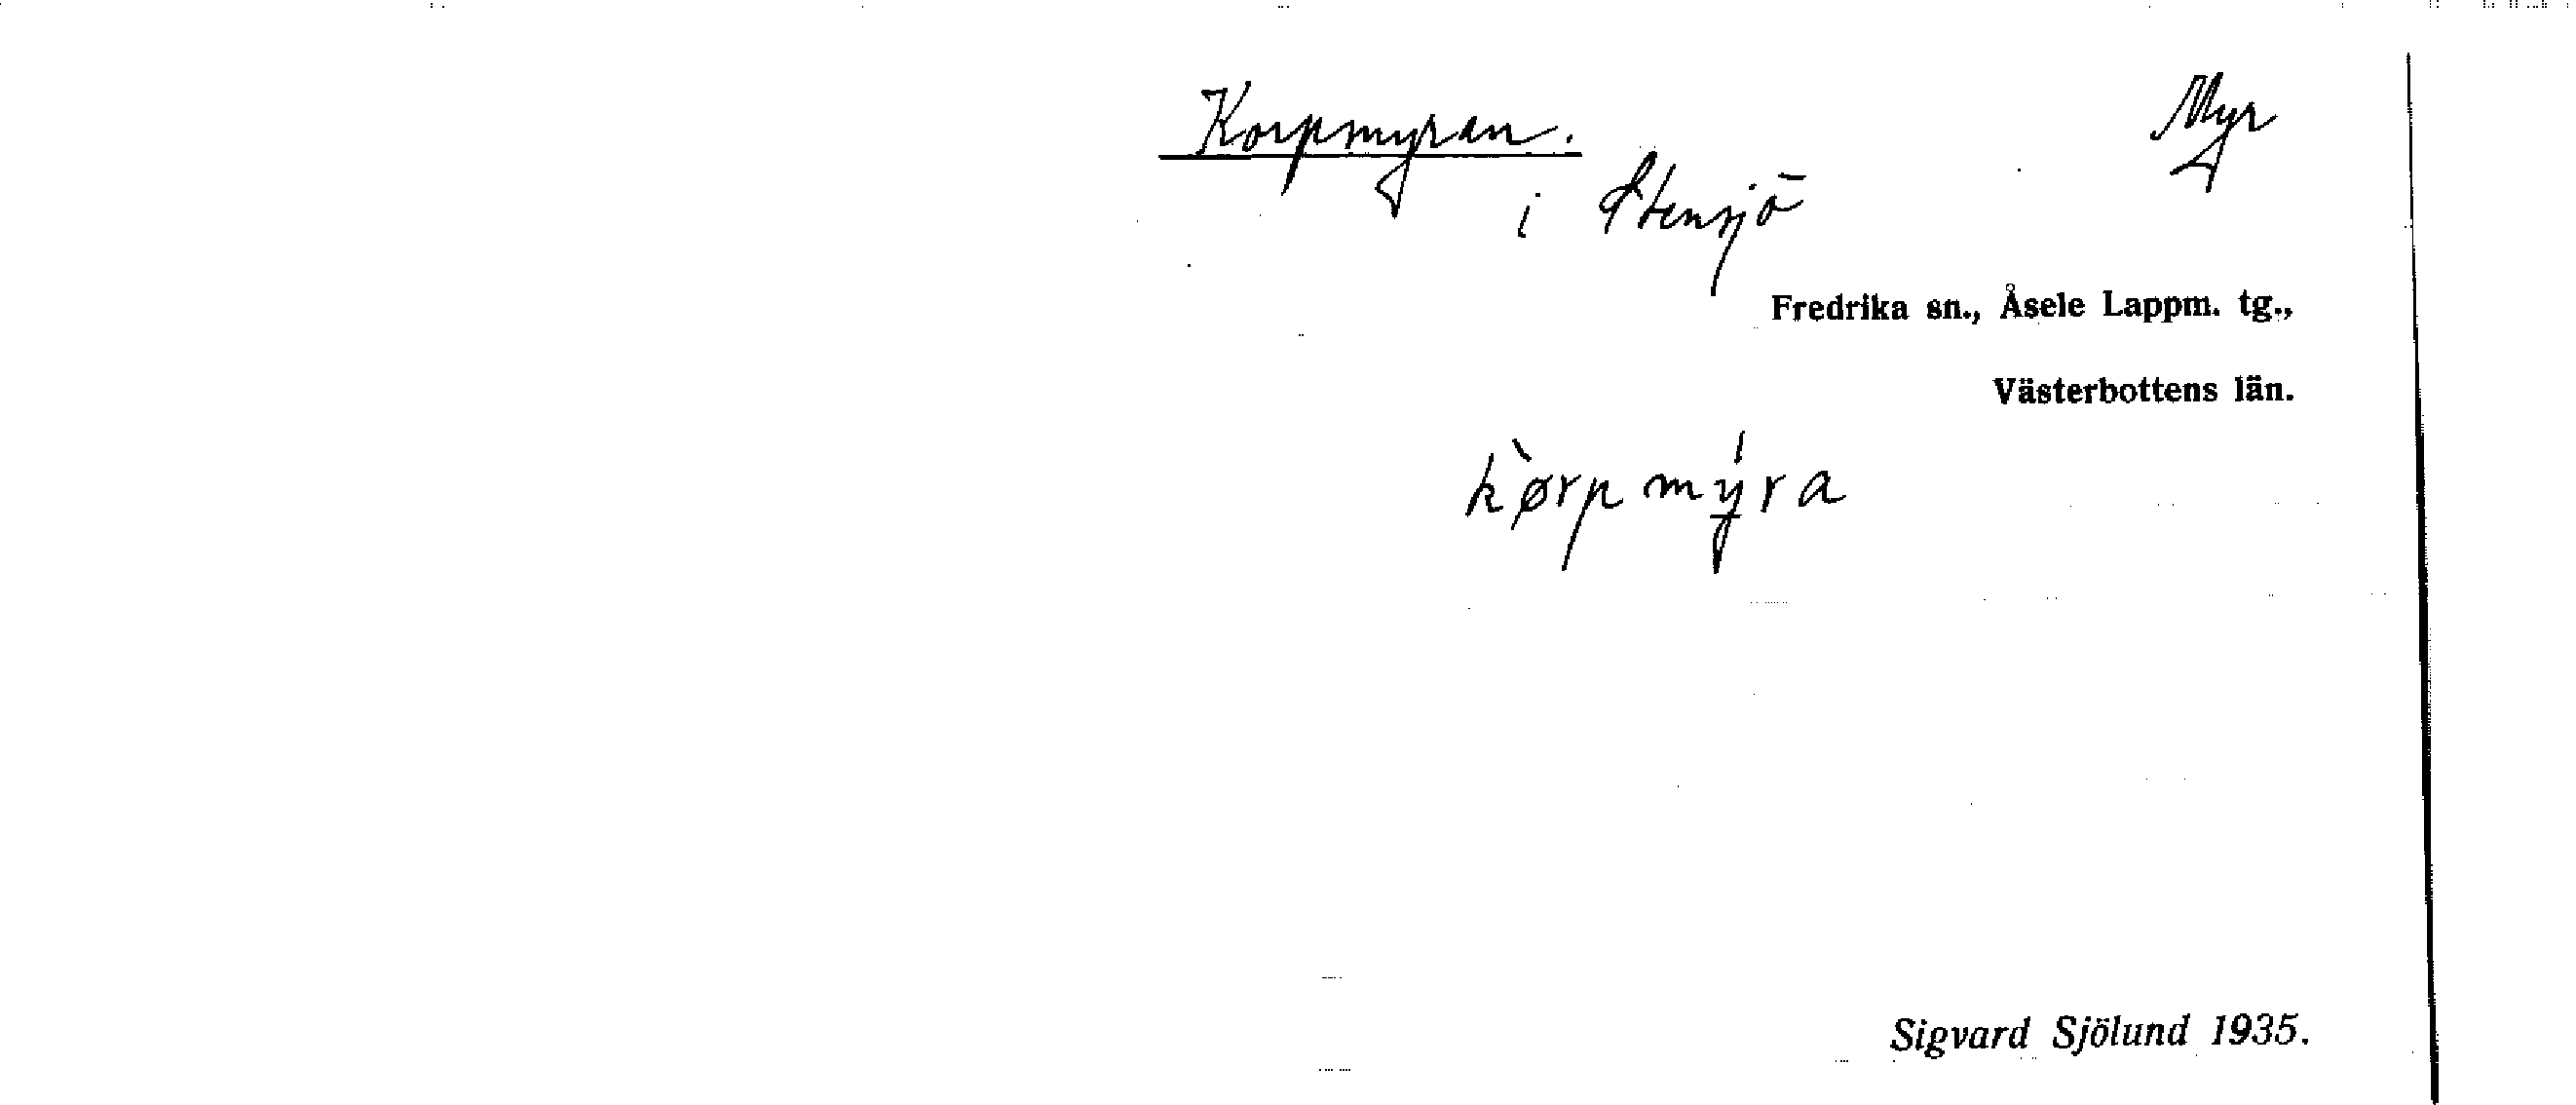 Korpmyran. Myr
i Stensjö
Fredrika sn., Åsele Lappm. tg.,
Västerbottens län.
kø̀rpmýra
Sigvard Sjölund 1935.